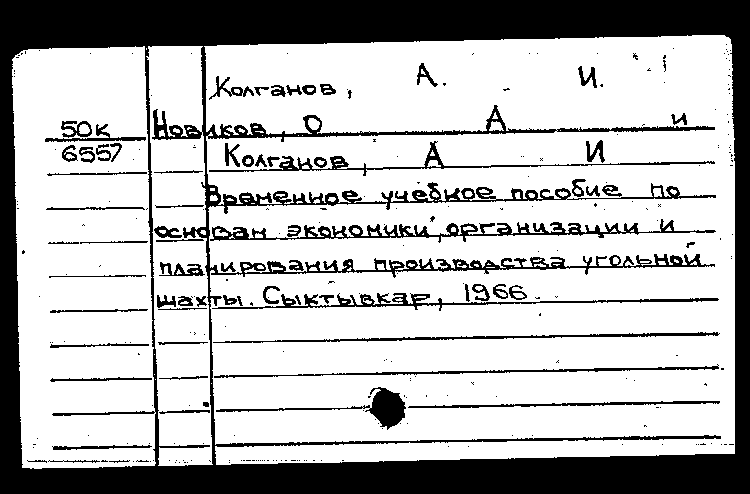 Колганов, А. И.
50к Новиков, О А и
6557 Колганов, А И
Временное учебное пособие по
основам экономики, организации и
планирования производства угольной
шахты. Сыктывкар, 1966.